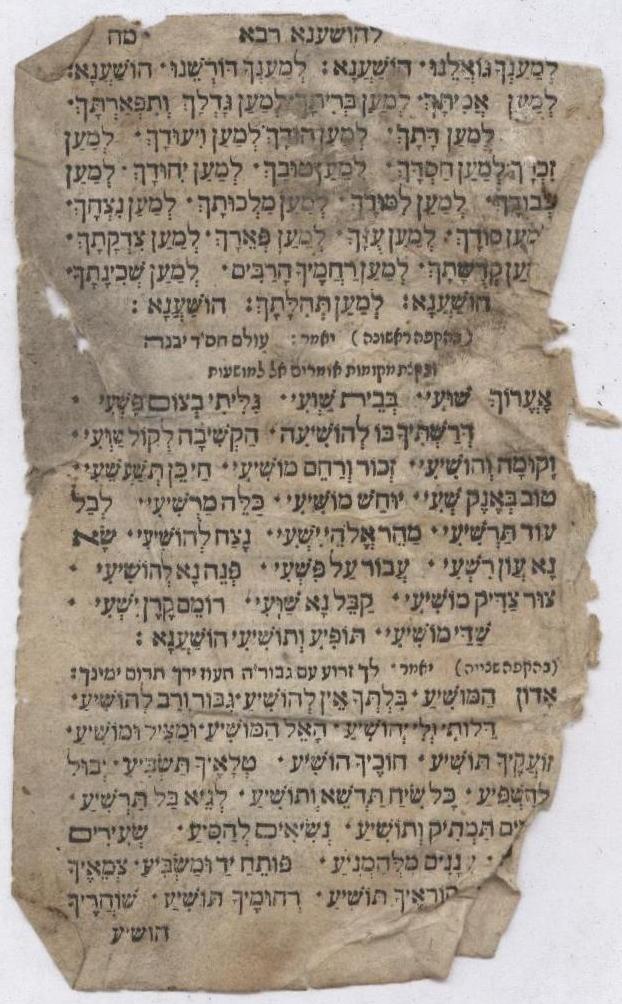 להושענא רבא מח
לְמַעַנְךָ גּוֹאֲלֵנוּ· הוֹשַׁעֲנָא: לְמַעַנְךָ דּוֹרְשֵׁנוּ· הוֹשַׁעֲנָא:
לְמַעַן אֲמִתָּךְ· לְמַעַן בְּרִיתָךְ· לְמַעַן גָּדְלָךְ וְתִפְאַרְתָּךְ·
לְמַעַן דָּתָךְ· לְמַעַן הוֹדָךְ· לְמַעַן וִיעוּדָךְ· לְמַעַן
זִכְרָךְ· לְמַעַן חַסְדָּךְ· לְמַעַן טוּבָךְ· לְמַעַן יִחוּדָךְ· לְמַעַן
כְּבוֹדָךְ· לְמַעַן לִמּוּדָךְ· לְמַעַן מַלְכוּתָךְ· לְמַעַן נִצְחָךְ·
לְמַעַן סוֹדָךְ· לְמַעַן עֻזָּךְ· לְמַעַן פְּאֵרָךְ· לְמַעַן צִדְקָתָךְ·
קְדֻשָּׁתָךְ· לְמַעַן רַחֲמֶיךָ הָרַבִּים· לְמַעַן שְׁכִינָתָךְ·
הוֹשַׁעֲנָא: לְמַעַן תְּהִלָּתָךְ: הוֹשַׁעֲנָא:
(בהקפה ראשונה) יאמר: עולם חס"ד יבנה
מקומות אומרים אל למושעות
אֶעֱרוֹךְ שׁוּעִי· בְּבֵית שַׁוְעִי· גִּלִּיתִי בְצוֹם פִּשְׁעִי·
דְּרַשְׁתִּיךָ בּוֹ לְהוֹשִׁיעָה· הַקְשִׁיבָה לְקוֹל שַׁוְעִי·
וְקוּמָה וְהוֹשִׁיעִי· זְכוֹר וְרַחֵם מוֹשִׁיעִי· חַי כֵּן תְּשַׁעְשְׁעִי·
טוֹב בְּאֶנֶק שְׁעִי· יוּחַשׁ מוֹשִׁיעִי· כַּלֵּה מַרְשִׁיעִי· לְבַל
עוֹד תַּרְשִׁיעִי· מַהֵר אֱלֹהֵי יִשְׁעִי· נֶצַח לְהוֹשִׁיעִי· שָׂא
נָא עֲוֹן רִשְׁעִי· עֲבוֹר עַל פִּשְׁעִי· פְּנֵה נָא לְהוֹשִׁיעִי·
צוּר צַדִּיק מוֹשִׁיעִי· קַבֵּל נָא שַׁוְעִי· רוֹמֵם קֶרֶן יִשְׁעִי·
שַׁדַּי מוֹשִׁיעִי· תּוֹפִיעַ וְתוֹשִׁיעִי הוֹשַׁעֲנָא:
(בהקפה שנייה) יאמר· לך זרוע עם גבור"ה תעוז ידך תרום ימינך:
אָדוֹן הַמּוֹשִׁיעַ· בִּלְתְּךָ אֵין לְהוֹשִׁיעַ· גִּבּוֹר וְרַב לְהוֹשִׁיעַ·
דַּלּוֹתִי וְלִי יְהוֹשִׁיעַ· הָאֵל הַמּוֹשִׁיעַ· וּמַצִּיל וּמוֹשִׁיעַ·
זוֹעֲקֶיךָ תּוֹשִׁיעַ· חוֹכֶיךָ הוֹשִׁיעַ· טְלָאֶיךָ תַּשְׂבִּיעַ· יְבוּל
לְהַשְׁפִּיעַ· כָּל שִׂיחַ תַּדְשֵׁא וְתוֹשִׁיעַ· לְגֵיא בַּל תַּרְשִׁיעַ·
תַּמְתִּיק וְתוֹשִׁיעַ· נְשִׂיאִים לְהַסִּיעַ· שְׂעִירִים
מִלְּהִמָּנִיעַ· פּוֹתֵחַ יָד וּמַשְׂבִּיעַ· צְמֵאֶיךָ
קוֹרְאֶיךָ תּוֹשִׁיעַ· רְחוּמֶיךָ תּוֹשִׁיעַ· שׁוֹחֲרֶיךָ
הושיע